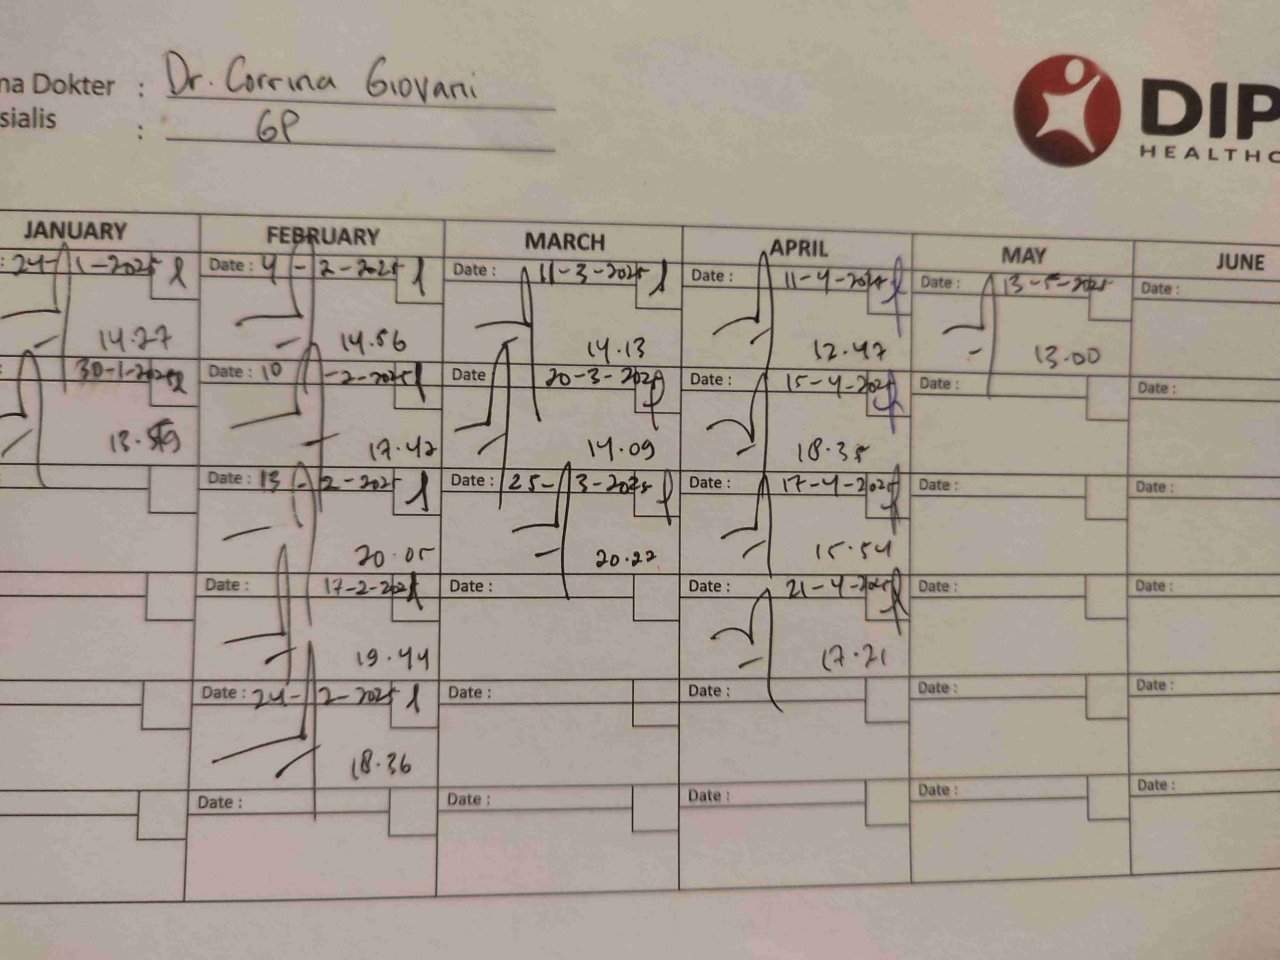 na Dokter : Dr. Corrina Giovani
sialis : GP
DIP
HEALTHC
JANUARY FEBRUARY MARCH APRIL MAY JUNE
: 24-1-2025 Date : 4-2-2025 Date : 11-3-2025 Date : 11-4-2025 Date : 13-5-2025 Date :
14.27 14.56 14.13 12.47 13.00
: 30-1-2025 Date : 10-2-2025 Date 20-3-2025 Date : 15-4-2025 Date : Date :
13. 17.42 14.09 18.35
Date : 13-2-2025 Date : 25-3-2025 Date : 17-4-2025 Date : Date :
20.05 20.22 15.54
Date : 17-2-2025 Date : Date : 21-4-2025 Date : Date :
19.44 17.21
Date : 24-2-2025 Date : Date : Date : Date :
18.36
Date : Date : Date : Date : Date :